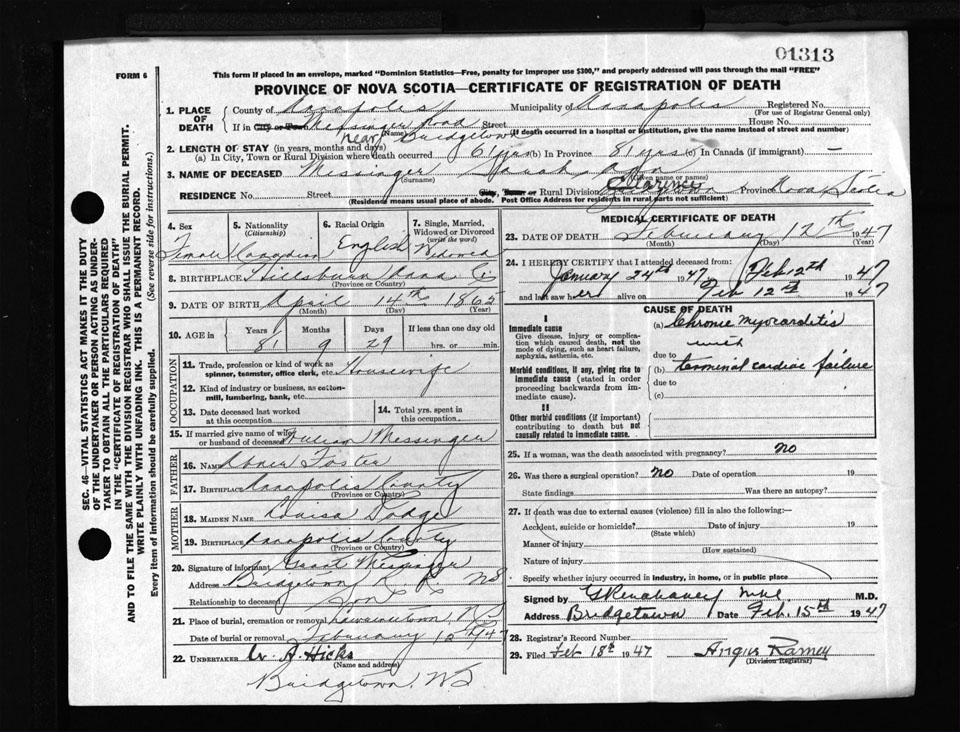 01313
FORM 6
This form if placed in an envelope, marked "Dominion Statistics—Free, penalty for improper use $300," and properly addressed will pass through the mail "FREE"
PROVINCE OF NOVA SCOTIA—CERTIFICATE OF REGISTRATION OF DEATH
1. PLACE OF DEATH County of Annapolis Municipality of Annapolis Registered No.
(For use of Registrar General only)
If in City or Town Messinger Road Street House No.
(Name) (If death occurred in a hospital or institution, give the name instead of street and number)
near Bridgetown
2. LENGTH OF STAY (in years, months and days)
(a) In City, Town or Rural Division where death occurred 61 yrs (b) In Province 81 yrs (c) In Canada (if immigrant) —
3. NAME OF DECEASED Messinger Sarah Ann
(Surname) (Given name or names)
RESIDENCE No. Street City, Town or Rural Division Clarence Province Nova Scotia
(Residence means usual place of abode. Post Office Address for residents in rural parts not sufficient)
4. Sex Female
5. Nationality (Citizenship) Canadian
6. Racial Origin English
7. Single, Married, Widowed or Divorced (write the word) Widowed
8. BIRTHPLACE Hillsburn Anna Co
(Province or Country)
9. DATE OF BIRTH April 14th 1865
(Month) (Day) (Year)
10. AGE in Years Months Days If less than one day old
81 9 29 hrs. or min.
OCCUPATION
11. Trade, profession or kind of work as spinner, teamster, office clerk, etc. Housewife
12. Kind of industry or business, as cotton-mill, lumbering, bank, etc.
13. Date deceased last worked at this occupation
14. Total yrs. spent in this occupation
15. If married give name of wife or husband of deceased Messinger
FATHER
16. NAME Abner Foster
17. BIRTHPLACE Annapolis County
(Province or Country)
MOTHER
18. MAIDEN NAME Louisa Dodge
19. BIRTHPLACE Annapolis County
(Province or Country)
20. Signature of informant Grant Messinger
Address Bridgetown NS
Relationship to deceased Son
21. Place of burial, cremation or removal Lawrencetown N.S
Date of burial or removal February 15th 1947
22. UNDERTAKER W. A Hicks
(Name and address)
Bridgetown, NS
MEDICAL CERTIFICATE OF DEATH
23. DATE OF DEATH February 12th 1947
(Month) (Day) (Year)
24. I HEREBY CERTIFY that I attended deceased from:
January 24th 1947 Feb 12th 1947
and last saw her alive on Feb 12th 1947
CAUSE OF DEATH
I
Immediate cause
Give disease, injury or complication which caused death, not the mode of dying, such as heart failure, asphyxia, asthenia, etc.
(a) Chronic myocarditis
with
due to
Morbid conditions, if any, giving rise to immediate cause (stated in order proceeding backwards from immediate cause)
(b) terminal cardiac failure
due to
(c)
II
Other morbid conditions (if important) contributing to death but not causally related to immediate cause.
25. If a woman, was the death associated with pregnancy? no
26. Was there a surgical operation? no Date of operation 19
State findings Was there an autopsy?
27. If death was due to external causes (violence) fill in also the following:—
Accident, suicide or homicide? Date of injury 19
(State which)
Manner of injury
(How sustained)
Nature of injury
Specify whether injury occurred in industry, in home, or in public place
Signed by M.D.
Address Bridgetown Date Feb. 15th 1947
28. Registrar's Record Number
29. Filed Feb 18th 1947 Angus Ramey
(Division Registrar)
SEC. 46—VITAL STATISTICS ACT MAKES IT THE DUTY
OF THE UNDERTAKER OR PERSON ACTING AS UNDER-
TAKER TO OBTAIN ALL THE PARTICULARS REQUIRED
IN THE "CERTIFICATE OF REGISTRATION OF DEATH"
AND TO FILE THE SAME WITH THE DIVISION REGISTRAR WHO SHALL ISSUE THE BURIAL PERMIT.
WRITE PLAINLY WITH UNFADING INK. THIS IS A PERMANENT RECORD.
Every item of information should be carefully supplied. (See reverse side for instructions.)